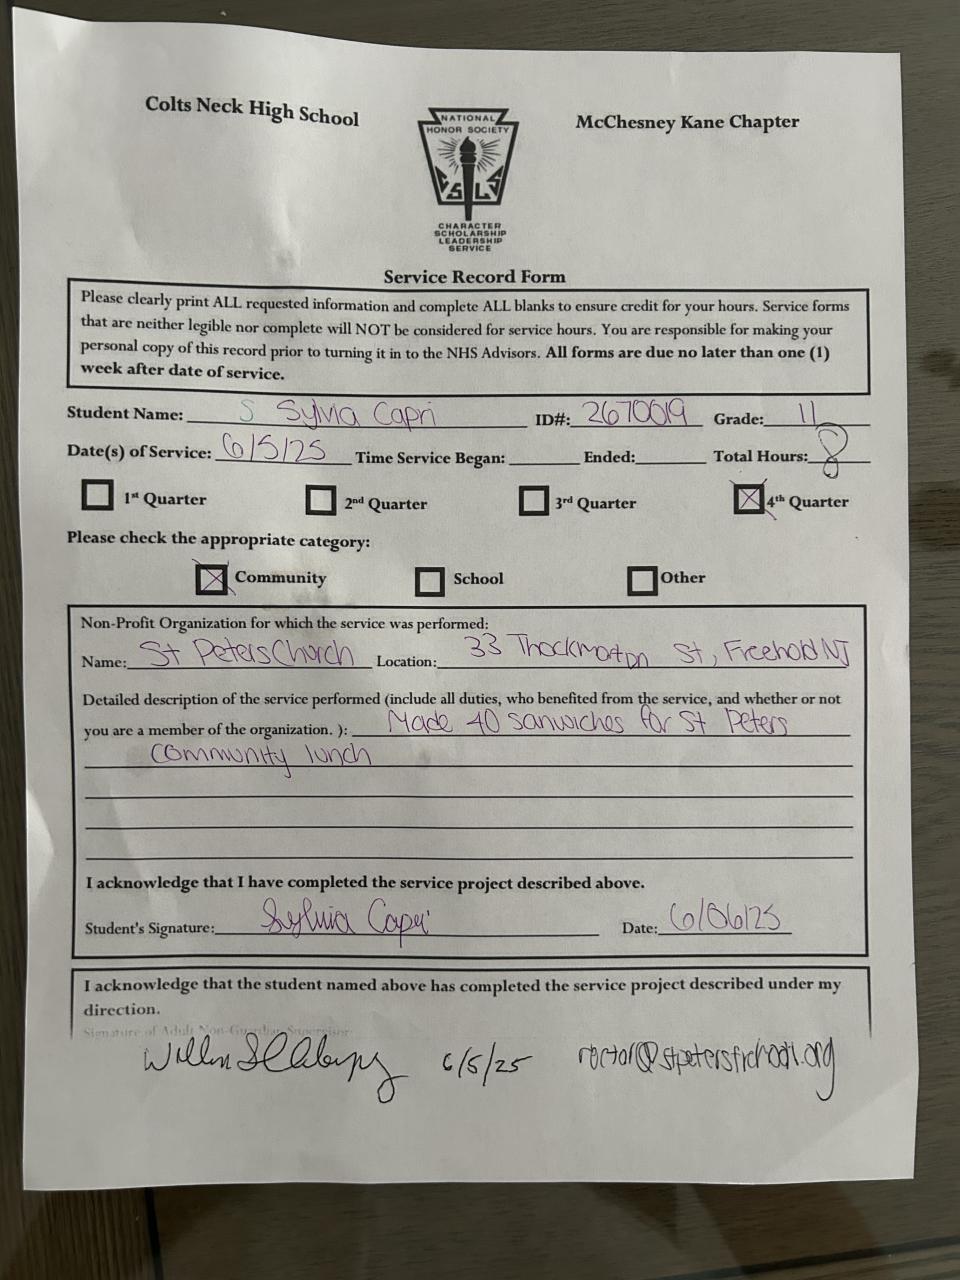 Colts Neck High School
McChesney Kane Chapter
NATIONAL
HONOR SOCIETY
C S L S
CHARACTER
SCHOLARSHIP
LEADERSHIP
SERVICE
Service Record Form
Please clearly print ALL requested information and complete ALL blanks to ensure credit for your hours. Service forms
that are neither legible nor complete will NOT be considered for service hours. You are responsible for making your
personal copy of this record prior to turning it in to the NHS Advisors. All forms are due no later than one (1)
week after date of service.
Student Name: S Sylvia Capri ID#: 2670019 Grade: 11
Date(s) of Service: 6/5/25 Time Service Began: Ended: Total Hours: 8
1st Quarter 2nd Quarter 3rd Quarter 4th Quarter
Please check the appropriate category:
Community School Other
Non-Profit Organization for which the service was performed:
Name: St Peters Church Location: 33 Thockmorton St, Freehold NJ
Detailed description of the service performed (include all duties, who benefited from the service, and whether or not
you are a member of the organization. ): Made 40 sanwiches for St Peters
community lunch
I acknowledge that I have completed the service project described above.
Student's Signature: Sylvia Capri Date: 6/06/25
I acknowledge that the student named above has completed the service project described under my
direction.
Signature of Adult Non-Guardian Supervisor:
6/5/25